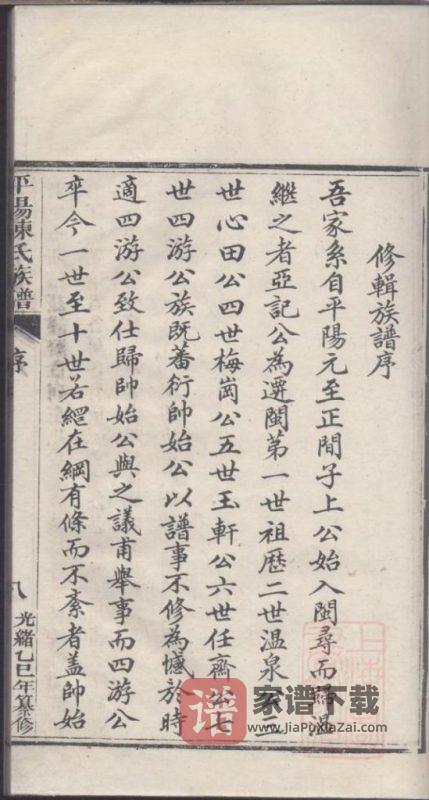 修輯族譜序
吾家系自平陽元至正間子上公始入閩尋而歸溫
繼之者亞記公為遷閩第一世祖歷二世溫泉公三
世心田公四世梅崗公五世玉軒公六世任齋公七
世四游公族既蕃衍帥始公以譜事不修為憾於時
適四游公致仕歸帥始公與之議甫舉事而四游公
卒今一世至十世若繩在綱有條而不紊者蓋帥始
平陽陳氏族譜
序
八
光緒乙巳年纂修
譜
家谱下载
www.JiaPuXiaZai.com